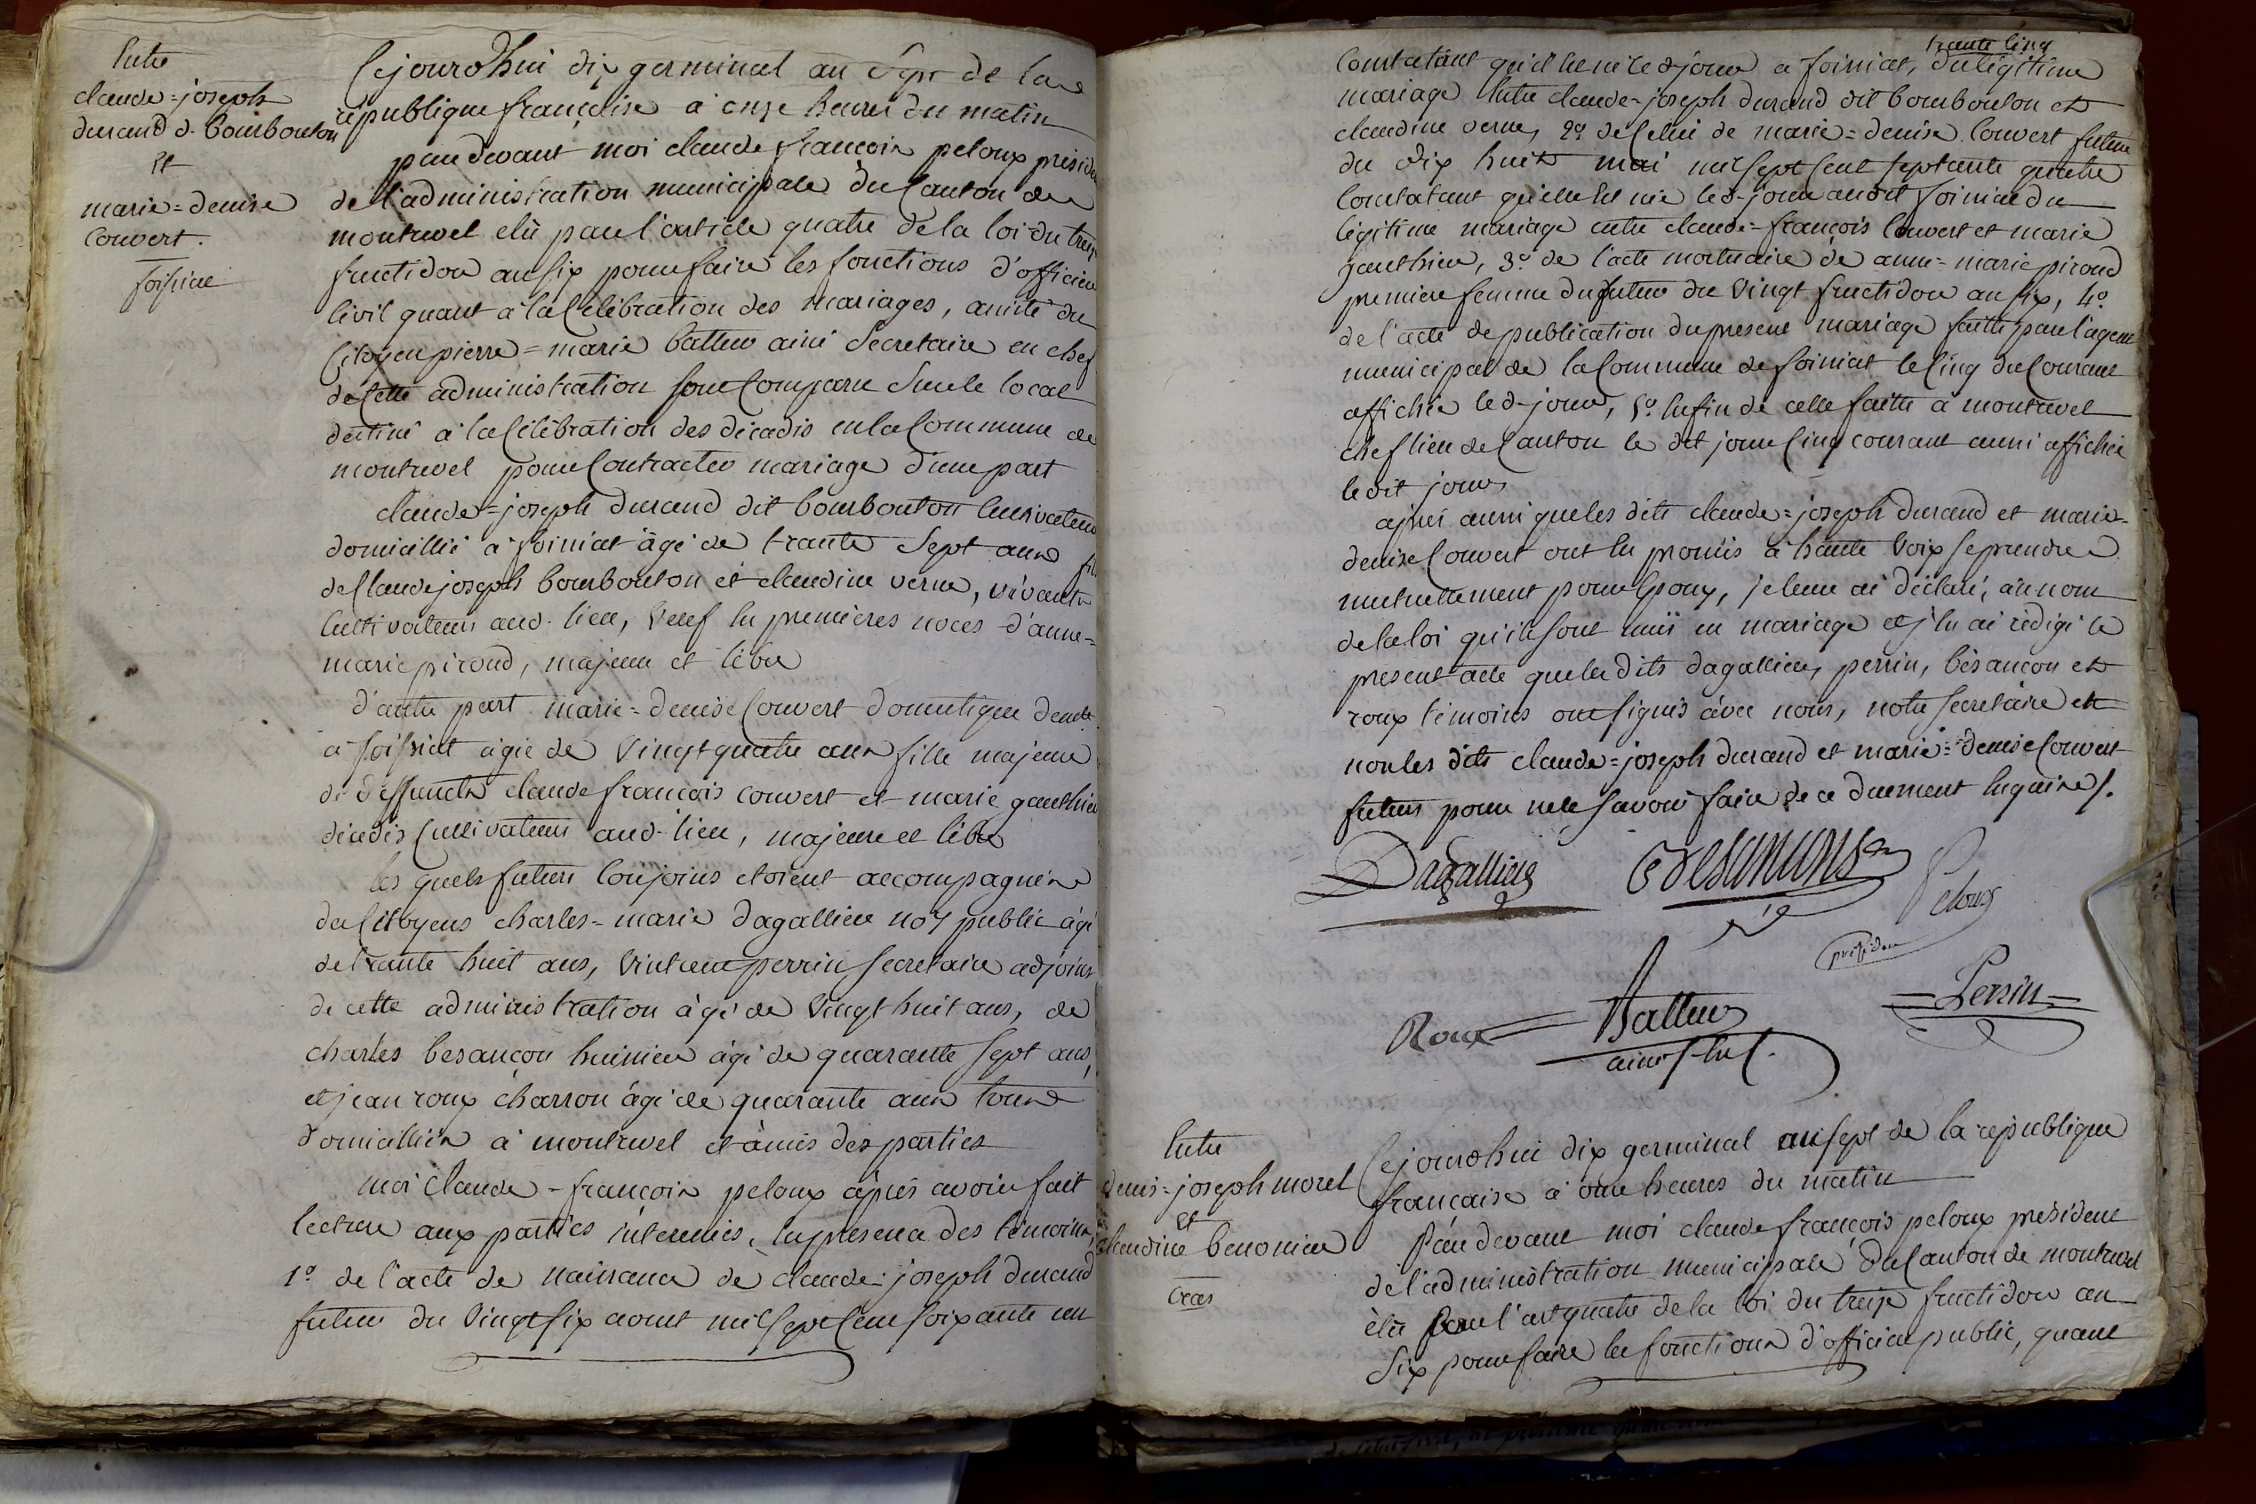 Entre
claude=joseph
durand d. bourbouton
Et
marie=denise
Couvert.
foissiat
Cejourdhui dix germinal an Sept de la
république française à onze heures du matin
pardevant moi claude françois peloux présiden
de l'administration municipale du Canton de
montrevel elû par l'article quatre de la loi du treize
fructidor an six pour faire les fonctions d'officier
Civil quant à la Célébration des mariages, assisté du
Citoyen pierre=marie batteur ainé Secretaire en chef
de Cette administration sont Comparu Sur le local
destiné à la Célébration des décadis en la Commune de
montrevel pour Contracter mariage d'une part
claude=joseph durand dit bourbouton Cultivateur
domicillié à foissiat âgé de trante Sept ans fils
de Claude joseph bourbouton et claudine verne, vivants
Cultivateurs aud. lieu, Veuf En premières noces d'anne=
marie pirond, majeur et libre
d'autre part marie=denise Couvert domestique demte
à foissiat âgée de Vingt quatre ans fille majeure
de deffuncts claude françois couvert et marie gauthier
décédés Cultivateurs aud. lieu, majeure et libre
les quels futurs Conjoins etoient accompagnés
des Citoyens charles=marie dagallier nore public âgé
de trante huit ans, Vincent perrin secretaire adjoint
de cette administration âgé de Vingt huit ans, de
charles besançon huissier âgé de quarante sept ans,
et jean roux charron âgé de quarante ans tous
domicilliés à montrevel et amis des parties
moi Claude=françois peloux après avoir fait
lecture aux parties intéressées, En presence des témoins,
1o. de l'acte de naissance de claude=joseph durand
futur du Vingt six aoust mil Sept Cent soixante un
trante Cinq
Constatant qu'il Est né Ce d. jour a foissiat, du légitime
mariage Entre claude=joseph durand dit bourbouton et
claudine verne, 2o. de Celui de marie=denise Couvert future
du dix huit mai mil sept Cent septante quatre
Constatant qu'elle Est née led. jour audit foissiat du
légitime mariage entre claude=françois Couvert et marie
gauthier, 3o. de l'acte mortuaire de anne=marie pirond
première femme du futur du Vingt fructidor an six, 4o.
de l'acte de publication du présent mariage faitte par l'agent
municipal de la Commune de foissiat le Cinq du Courant
affichée led. jour, 5o. Enfin de celle faitte à montrevel
chef lieu de Canton le dit jour Cinq courant aussi affichée
le dit jour
après aussi que les dits claude=joseph durand et marie=
denise Couvert ont Eu promis à haute Voix se prendre
mutuellement pour Epoux, je leur ai déclaré, au nom
de la loi qu'ils sont unis en mariage et j'En ai rédigé le
présent acte que les dits dagallier, perrin, bésançon et
roux témoins ont signés avec nous, notre secretaire et
non les dits claude=joseph durand et marie=denise Couvert
futurs pour ne le savoir faire de ce duement Enquis /.
Dagallier
Besançon
Peloux
présiden
Roux
Batteur
ainé
Perrin
Entre
denis=joseph morel
Et
claudine benonier
Cras
Cejourdhui dix germinal an sept de la république
française à onze heures du matin
Pardevant moi claude françois peloux président
de l'administration municipale du Canton de montrevel
élû par l'art quatre de la loi du treize fructidor an
Six pour faire les fonctions d'officier public, quant